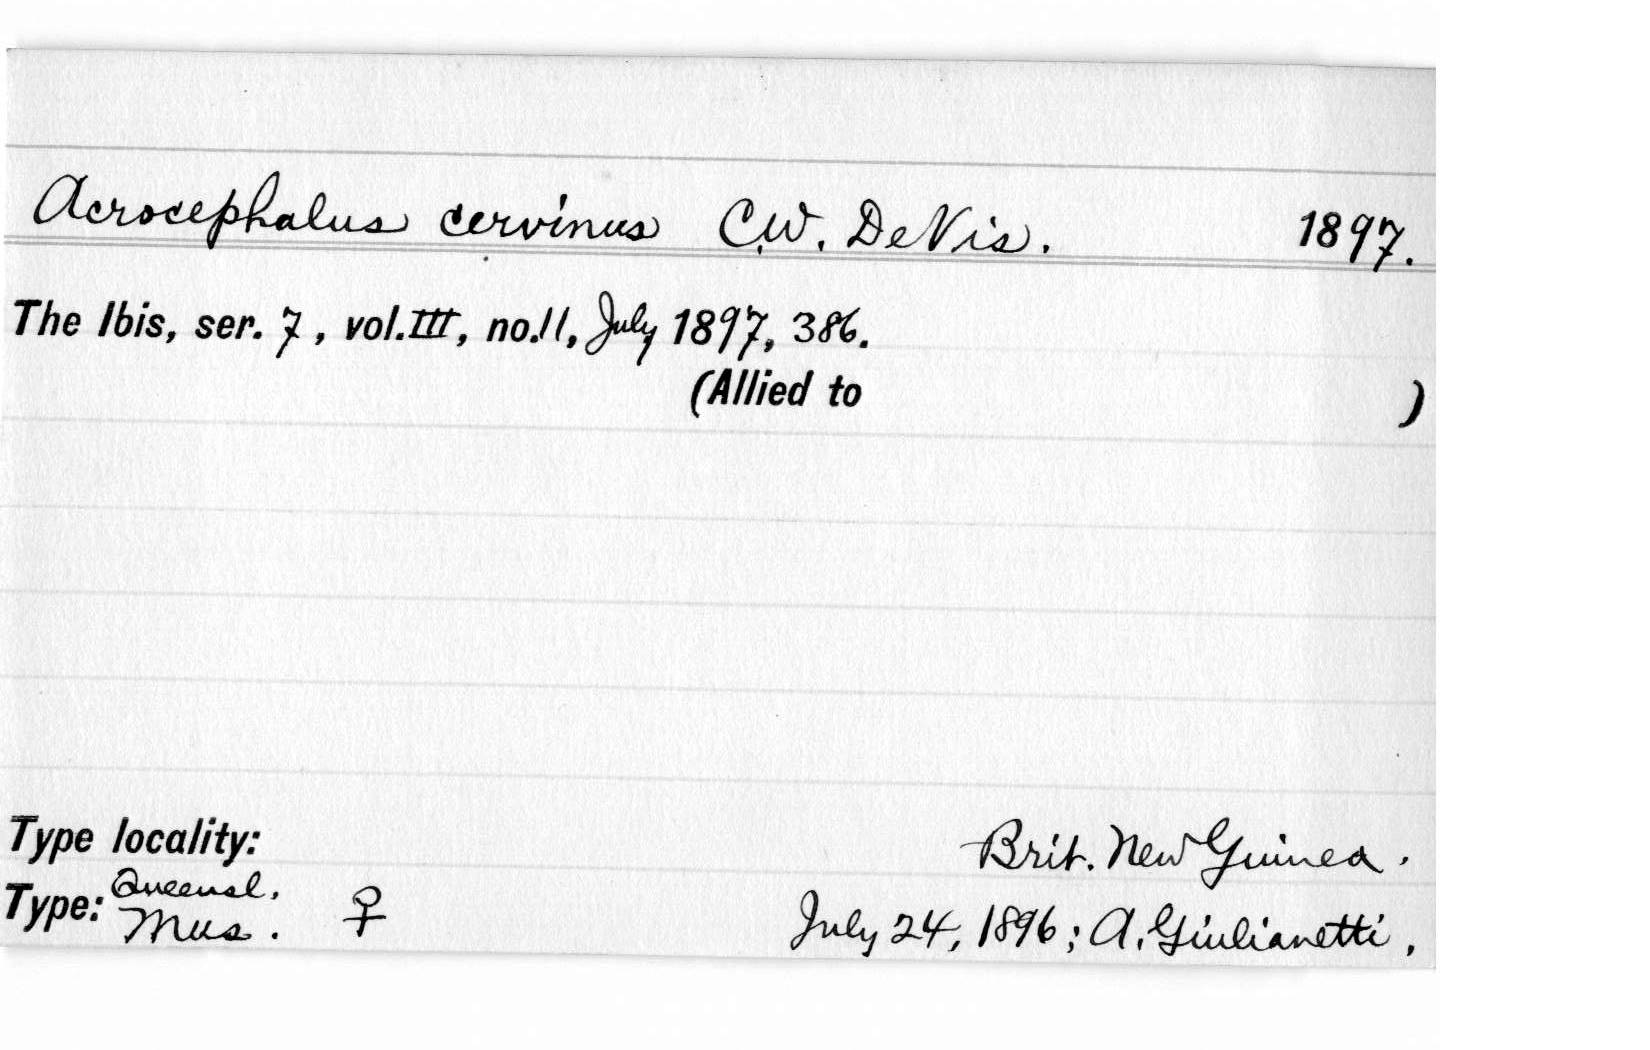 Acrocephalus cervinus C.W. DeVis. 1897.
The Ibis, ser. 7, vol. III, no. 11, July 1897, 386.
(Allied to )
Type locality: Brit. New Guinea.
Type: Queensl. Mus. ♀ July 24, 1896; A. Giulianetti,